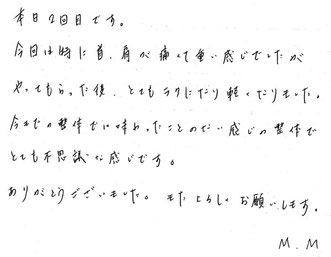 本日2回目です。
今回は特に首、肩が痛くて重い感じでしたが
やってもらった後、とてもラクになり軽くなりました。
今までの整体では味わったことのない感じの整体で
とても不思議な感じです。
ありがとうございました。またよろしくお願いします。
M.M